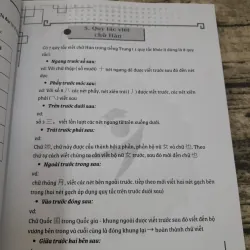 5. Quy tắc viết
chữ Hán
Có 7 quy tắc viết chữ Hán trong tiếng Trung ( 7 quy tắc theo tỉ đúng là 8 quy
tắc):
• Ngang trước sổ sau:
Với chữ thập ( số mười) 十 nét ngang đã được viết trước sau đó đến nét
dọc.
• Phẩy trước mác sau:
Với số 八 ( các nét phẩy, nét xiên trái ) được viết trước, các nét xiên phải
( ) viết sau
• Trên trước dưới sau:
ví dụ:
số 三. viết lần lượt các nét ngang từ trên xuống dưới.
• Trái trước phải sau:
vd:
Chữ , chữ này được cấu thành bởi 2 phần, phần bộ nữ 女 và chữ 也. Theo
thứ tự cách viết chúng ta cần viết bộ nữ 女 trước, sau đó mới đến chữ 也
• Ngoài trước trong sau:
vd:
chữ tháng 月, viết các nét bên ngoài trước, tiếp theo mới viết hai nét gạch bên
trong (hai nét gạch bên trong áp dụng quy tắc trên trước dưới sau)
• Vào trước đóng sau:
vd:
Chữ Quốc 国 trong Quốc gia - khung ngoài được viết trước sau đó viết đến bộ
vương bên trong và cuối cùng là đóng khung lại → hoàn thành chữ viết
• Giữa trước hai bên sau: